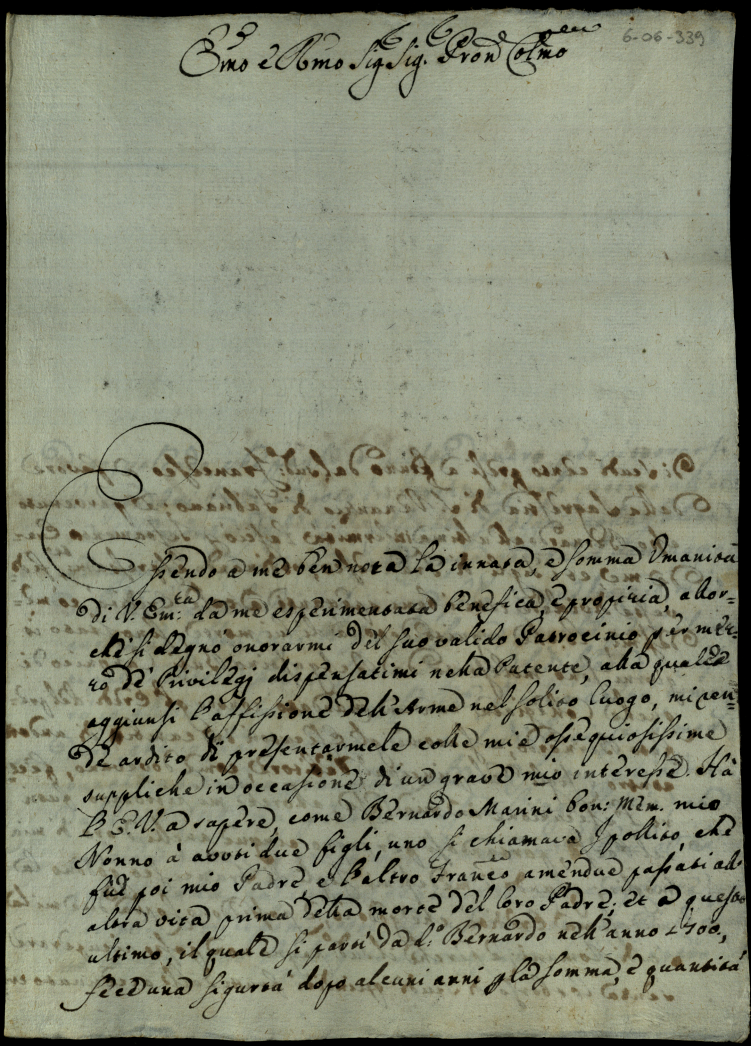 6-06-339
Emo e Rmo Sig Sig. Pron Colmo
Essendo a me ben nota la innata, e somma Umanità
di V. Em:za da me esperimentata benefica, e propizia, allor=
chè si degnò onorarmi del suo valido Patrocinio per mez=
zo de Privilegj dispensatimi nella Patente, alla quale
aggiunsi l'affissione dell'Arme nel solito luogo, mi ren=
de ardito di presentarmele colle mie ossequiosissime
suppliche in occasione di un grave mio interesse. Hà
l'E.V. a sapere, come Bernardo Marini bon: mem. mio
Nonno à avuti due figli, uno si chiamava Ipolito, che
fu poi mio Padre e l'altro Franco amendue passati all'
altra vita prima della morte del loro Padre; et a questo
ultimo, il quale si partì da do Bernardo nell'anno 1700,
fece una sigurtà dopo alcuni anni p la somma, e quantità